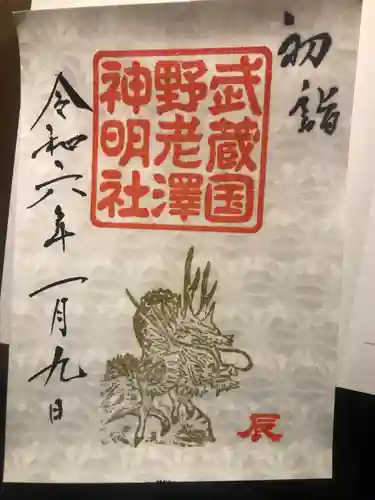 初詣
武蔵国
野老澤
神明社
令和六年一月九日
辰